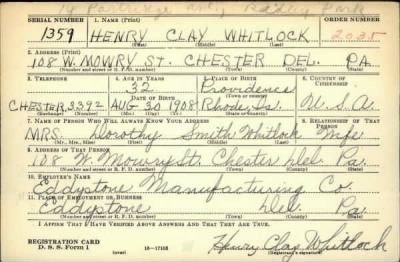 14 Partridge Ave., Ridley Park
SERIAL NUMBER 1. NAME (Print) ORDER NUMBER
1359 HENRY CLAY WHITLOCK 2035
(First) (Middle) (Last)
2. ADDRESS (Print)
108 W. MOWRY ST. CHESTER DEL. PA.
(Number and street or R. F. D. number) (Town) (County) (State)
3. TELEPHONE 4. AGE IN YEARS 5. PLACE OF BIRTH 6. COUNTRY OF CITIZENSHIP
32 Providence
DATE OF BIRTH (Town or county)
CHESTER, 3392 AUG 30 1908 Rhode, Is. U. S. A.
(Exchange) (Number) (Mo.) (Day) (Yr.) (State or country)
7. NAME OF PERSON WHO WILL ALWAYS KNOW YOUR ADDRESS 8. RELATIONSHIP OF THAT PERSON
MRS. Dorothy Smith Whitlock Wife
(Mr., Mrs., Miss) (First) (Middle) (Last)
9. ADDRESS OF THAT PERSON
108 W. Mowry St. Chester Del. Pa.
(Number and street or R. F. D. number) (Town) (County) (State)
10. EMPLOYER'S NAME
Eddystone Manufacturing Co.
11. PLACE OF EMPLOYMENT OR BUSINESS
Eddystone Del. Pa.
(Number and street or R. F. D. number) (Town) (County) (State)
I AFFIRM THAT I HAVE VERIFIED ABOVE ANSWERS AND THAT THEY ARE TRUE.
REGISTRATION CARD
D. S. S. Form 1 (over) 16-17105 Henry Clay Whitlock
(Registrant's signature)